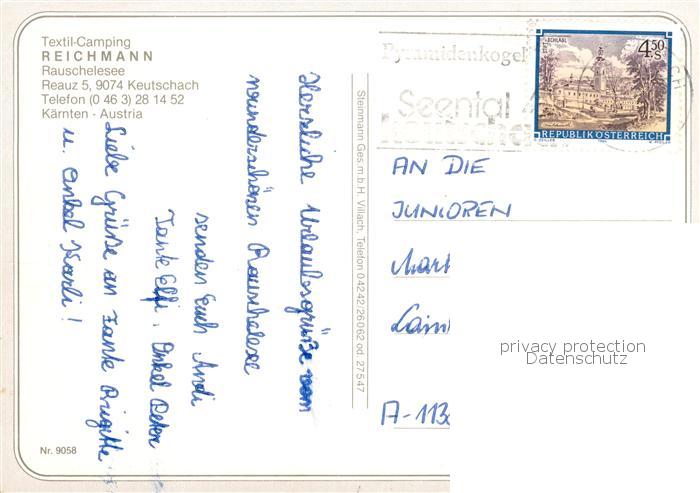 Textil-Camping
REICHMANN
Rauschelesee
Reauz 5, 9074 Keutschach
Telefon (0 46 3) 28 14 52
Kärnten - Austria
Herzliche Urlaubsgrüße vom
wunderschönen Rauschelesee
senden Euch Andi
Tante Elfi, Onkel Peter
Liebe Grüße an Tante Brigitte
u. Onkel Karli!
Nr. 9058
Steinmann Ges.m.b.H. Villach, Telefon 04242/26062 od. 27547
Pyramidenkogel
Seental
STIFT SCHLÄGL
4.50 S
REPUBLIK ÖSTERREICH
AN DIE
JUNIOREN
A-113
privacy protection
Datenschutz